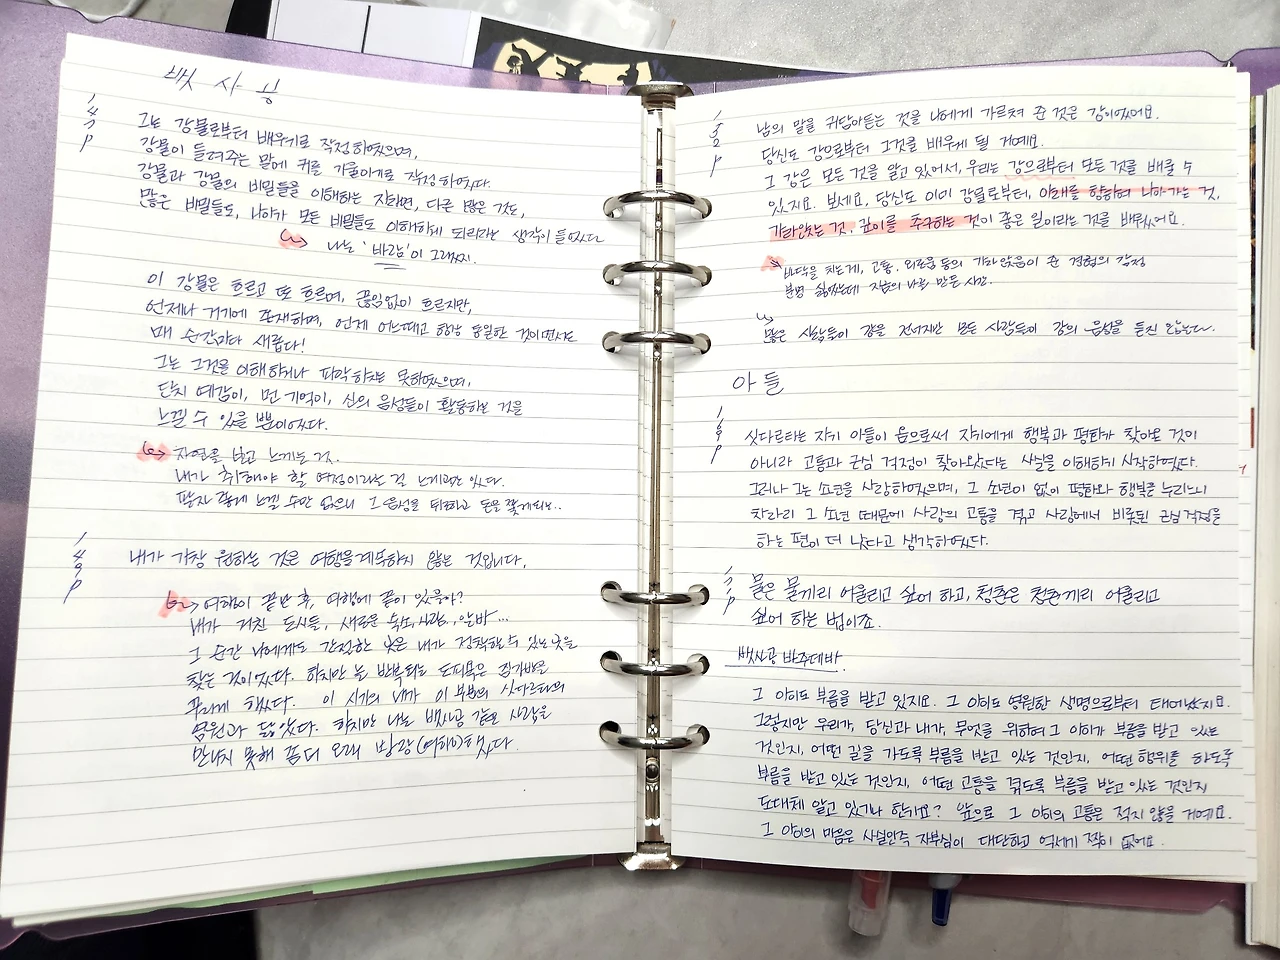 뱃사공
147p
그는 강물로부터 배우기로 작정하였으며,
강물이 들려주는 말에 귀를 기울이기로 작정하였다.
강물과 강물의 비밀들을 이해하는 자라면, 다른 많은 것도,
많은 비밀들도, 나아가 모든 비밀들도 이해하게 되리라는 생각이 들었다
나는 '바람'이 그러하지.
이 강물은 흐르고 또 흐르며, 끊임없이 흐르지만,
언제나 거기에 존재하며, 언제 어느때고 항상 동일한 것이면서도
매 순간마다 새롭다!
그는 그것을 이해하거나 파악하지는 못하였으며,
단지 예감이, 먼 기억이, 신의 음성들이 활동하는 것을
느낄 수 있을 뿐이었다.
자연을 보고 느끼는 것.
내가 취해야 할 여정이라는 걸 느끼고만 있다.
느낄 수만 없으니 그 음성을
149p
내가 가장 원하는 것은 여행을 계속하지 않는 것입니다.
여행이 끝난 후, 여행에 끝이 있을까?
내가 거친 도시들, 새로운 숙소, 사람, 알바...
그 순간 나에게도 간절한 것은 내가 정착할 수 있는 곳을
찾는 것이었다. 하지만 늘 반복되는 도피욕은 집가방을
꾸리게 했었다. 이 시기의 내가 이 부분의 싯다르타의
염원과 닮았다. 하지만 나는 뱃사공 같은 사람을
만나지 못해 좀 더 오래 방랑(여행)했다.
152p
남의 말을 귀담아듣는 것을 나에게 가르쳐 준 것은 강이었어요.
당신도 강으로부터 그것을 배우게 될 거예요.
그 강은 모든 것을 알고 있어서, 우리는 강으로부터 모든 것을 배울 수
있지요. 보세요, 당신도 이미 강물로부터, 아래를 향하여 나아가는 것,
가라앉는 것, 깊이를 추구하는 것이 좋은 일이라는 것을 배웠어요.
바닥을 치는게, 고통, 외로움 등의 가라앉음이 준 경험의 감정
분명 싫었는데 지금의 나를 만든 시간.
많은 사람들이 강을 건너지만 모든 사람들이 강의 음성을 듣진 않는다.
아들
169p
싯다르타는 자기 아들이 옴으로써 자기에게 행복과 평화가 찾아온 것이
아니라 고통과 근심 걱정이 찾아왔다는 사실을 이해하기 시작하였다.
그러나 그는 소년을 사랑하였으며, 그 소년이 없이 평화와 행복을 누리느니
차라리 그 소년 때문에 사랑의 고통을 겪고 사랑에서 비롯된 근심 걱정을
하는 편이 더 낫다고 생각하였다.
물은 물끼리 어울리고 싶어 하고, 청춘은 청춘끼리 어울리고
싶어 하는 법이죠.
뱃사공 바주데바.
그 아이도 부름을 받고 있지요. 그 아이도 영원한 생명으로부터 태어났지요.
그렇지만 우리가, 당신과 내가, 무엇을 위하여 그 아이가 부름을 받고 있는
것인지, 어떤 길을 가도록 부름을 받고 있는 것인지, 어떤 행위를 하도록
부름을 받고 있는 것인지, 어떤 고통을 겪도록 부름을 받고 있는 것인지
도대체 알고 있기나 한가요? 앞으로 그 아이의 고통은 적지 않을 거예요.
그 아이의 마음은 사실인즉 자부심이 대단하고 억세기 짝이 없어요.